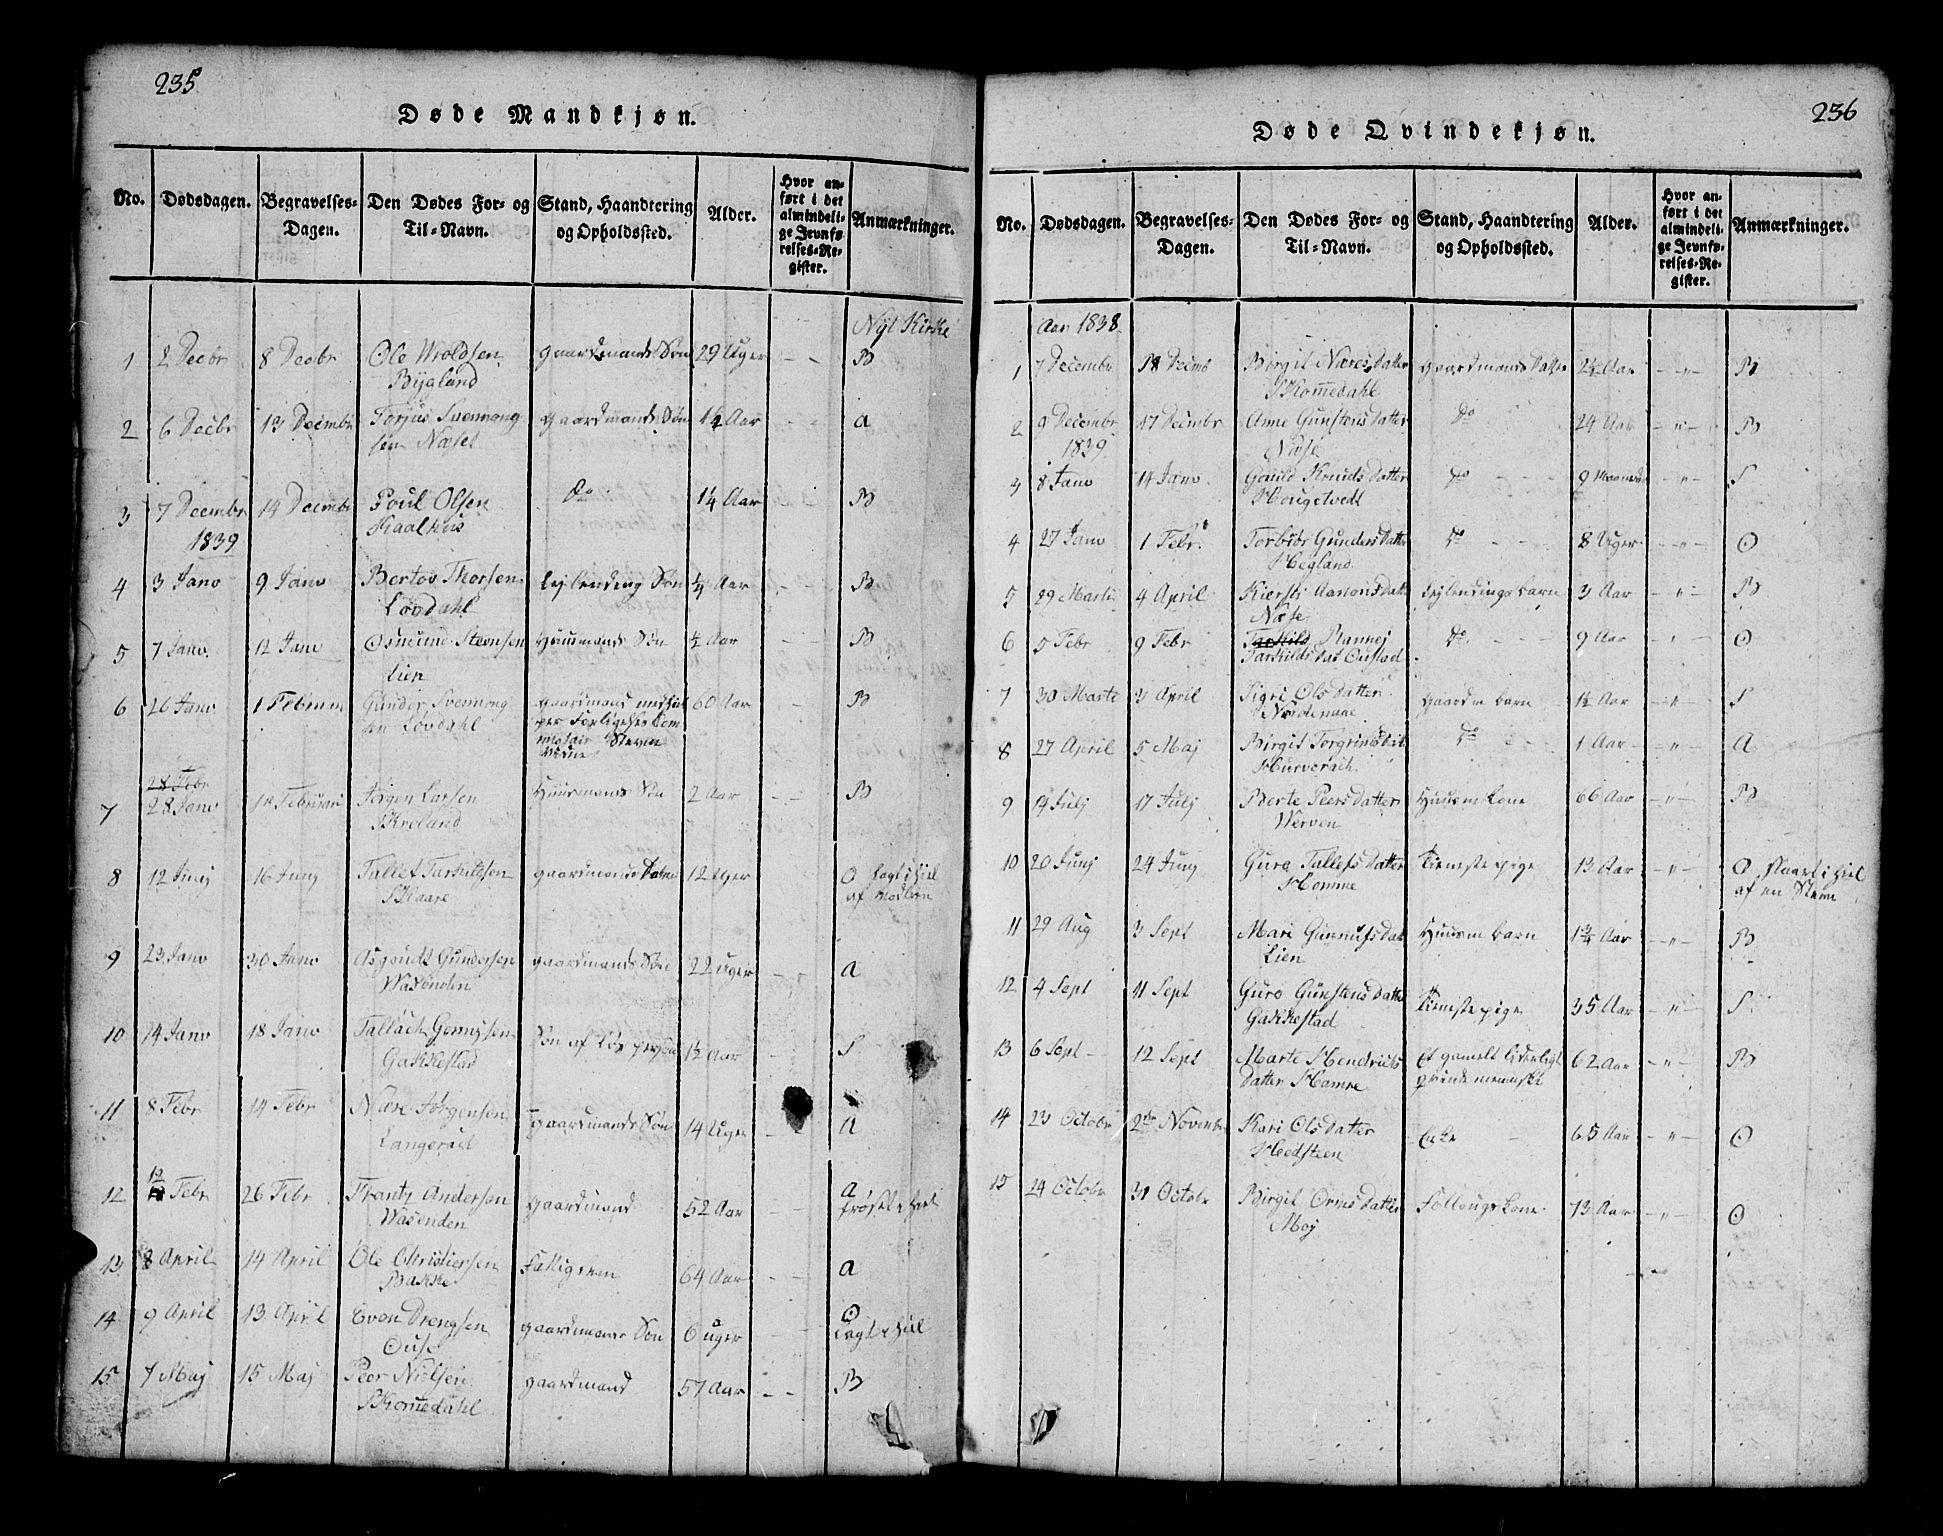 235
Døde Mandkjøn.
No. Dødsdagen. Begravelses-Dagen. Den Dødes For- og Til-Navn. Stand, Haandtering og Opholdssted. Alder. Hvor anført i det almindelige Jevnførelses-Register. Anmærkninger.
Nyl Kirke
1 2 Decbr 8 Decbr Ole Wroldsen gaardmands Søn 29 Uger - - B
Bygland
2 6 Decbr 13 Decembr Torjus Svennong gaardmands Søn 1½ Aar - - a
sen Næset
3 7 Decembr 14 Decembr Poul Olsen Do 1¼ Aar - - B
1839 Kaalhus
4 3 Janv 9 Janv Bertov Thorsen Lejlending Søn ¼ Aar - - B
Lovdahl
5 7 Janv. 12 Janv Osmund Steensen Huusmands Søn ½ Aar - - B
Lien
6 26 Janv 1 Februar Gunder Svennong gaardmand 60 Aar - B
sen Lovdahl
28 Febr
7 28 Janv Februari Jørgen Larsen Huusmands Søn 2 Aar - - B
8 12 Junj 16 Junj Tallef Tarkildsen gaardmands 12 Uger O Lagt ihiel
Skaare af Modren
9 23 Janv 30 Janv Asgondt Gundersen gaardmands Søn 22 uger - - a
Wasenden
10 14 Janv 18 Janv Tallach Gonnysen Søn af Løs person 1½ Aar S
Gakkestad
11 8 Febr 14 Febr Nære Jørgensen gaardmands Søn 14 Uger - - a
Langeraid
12 12 Febr 26 Febr Frantz Andersen gaardmand 52 Aar - - a
Wasenden
13 8 April 14 April Ole Christiersen 64 Aar - - a
Bakke
14 9 April 13 April Even Drengsen gaardmands Søn 6 uger O
Ouse Lagt ihiel
15 7 Maj 15 Maj Peer Nielsen gaardmand 57 Aar - - B
Skomedahl
236
Døde Qvindekjøn.
No. Dødsdagen. Begravelses-Dagen. Den Dødes For- og Til-Navn. Stand, Haandtering og Opholdssted. Alder. Hvor anført i det almindelige Jevnførelses-Register. Anmærkninger.
Aar 1838
1 7 Decembr 18 Decmb Birgit Næresdatter gaardmands Datter 2½ Aar - " - B
Skomedahl
2 9 Decembr 17 Decembr Anne Gunstensdatter Do 24 Aar - " - B
1839 Næse
3 8 Janv 14 Janv Gauld Knudsdatter Do 9 Maaneder - " - S
Hougetvedt
4 27 Janv 1 Febr. Torbør Gundersdatter Do 8 Uger - " - O
Hegland
5 29 Marti 4 April Kiersti Aanonsdatte Lejlendings barn 3 Aar - " - B
Næse
6 5 Febr 9 Febr Tarkild Rannej Do 9 Aar - " - O
Tarkildsdat Oustad
7 30 Marte 3 April Sigri Olsdatter gaardm barn 1½ Aar - " - S
Nordenaae
8 27 April 5 Maj Birgit Torgrimsdat Do 1 Aar - " - A
Hurverack
9 14 Julj 17 Julj Berte Peersdatter Huusm kone 66 Aar - " - B
Werven
10 20 Junj 24 Junj Guro Tallefsdatter Tienestepige 13 Aar - " - O slaaet ihiel
Homme af en Steen
11 29 Aug 3 Sept Mari Gunnufsdat Huusm barn 1¾ Aar - " - B
Lien
12 4 Sept 11 Sept Guro Gunstensdatter Tienestepige 35 Aar - " - S
Gakkestad
13 6 Sept 12 Sept Marte Hendricks Et gamelt liderligt 62 Aar - " - B
datter Hamre qvindemenniske
14 23 Octobr 2den Novembr Kari Olsdatter Enke 65 Aar - " - O
Hedsteen
15 24 Octobr 31 Octobr Birgit Ormsdatter Follougskone 73 Aar - " - O
Moj